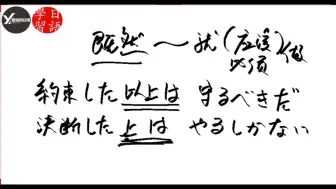 学日
習語
既然～就(应该 必须)做
約束した以上は 守るべきだ
決断した上は やるしかない